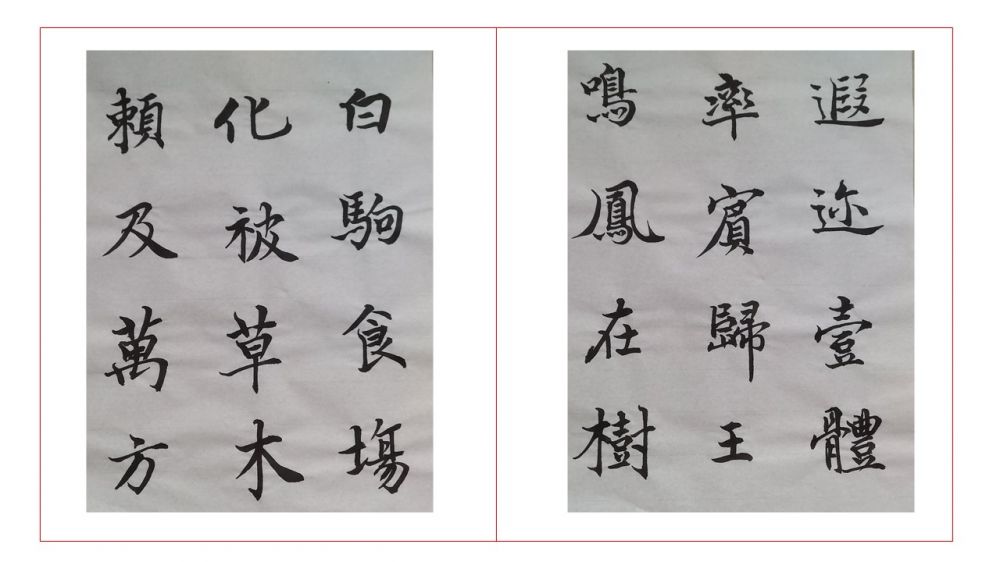 遐迩壹體
率賓歸王
鳴鳳在樹
白駒食場
化被草木
賴及萬方